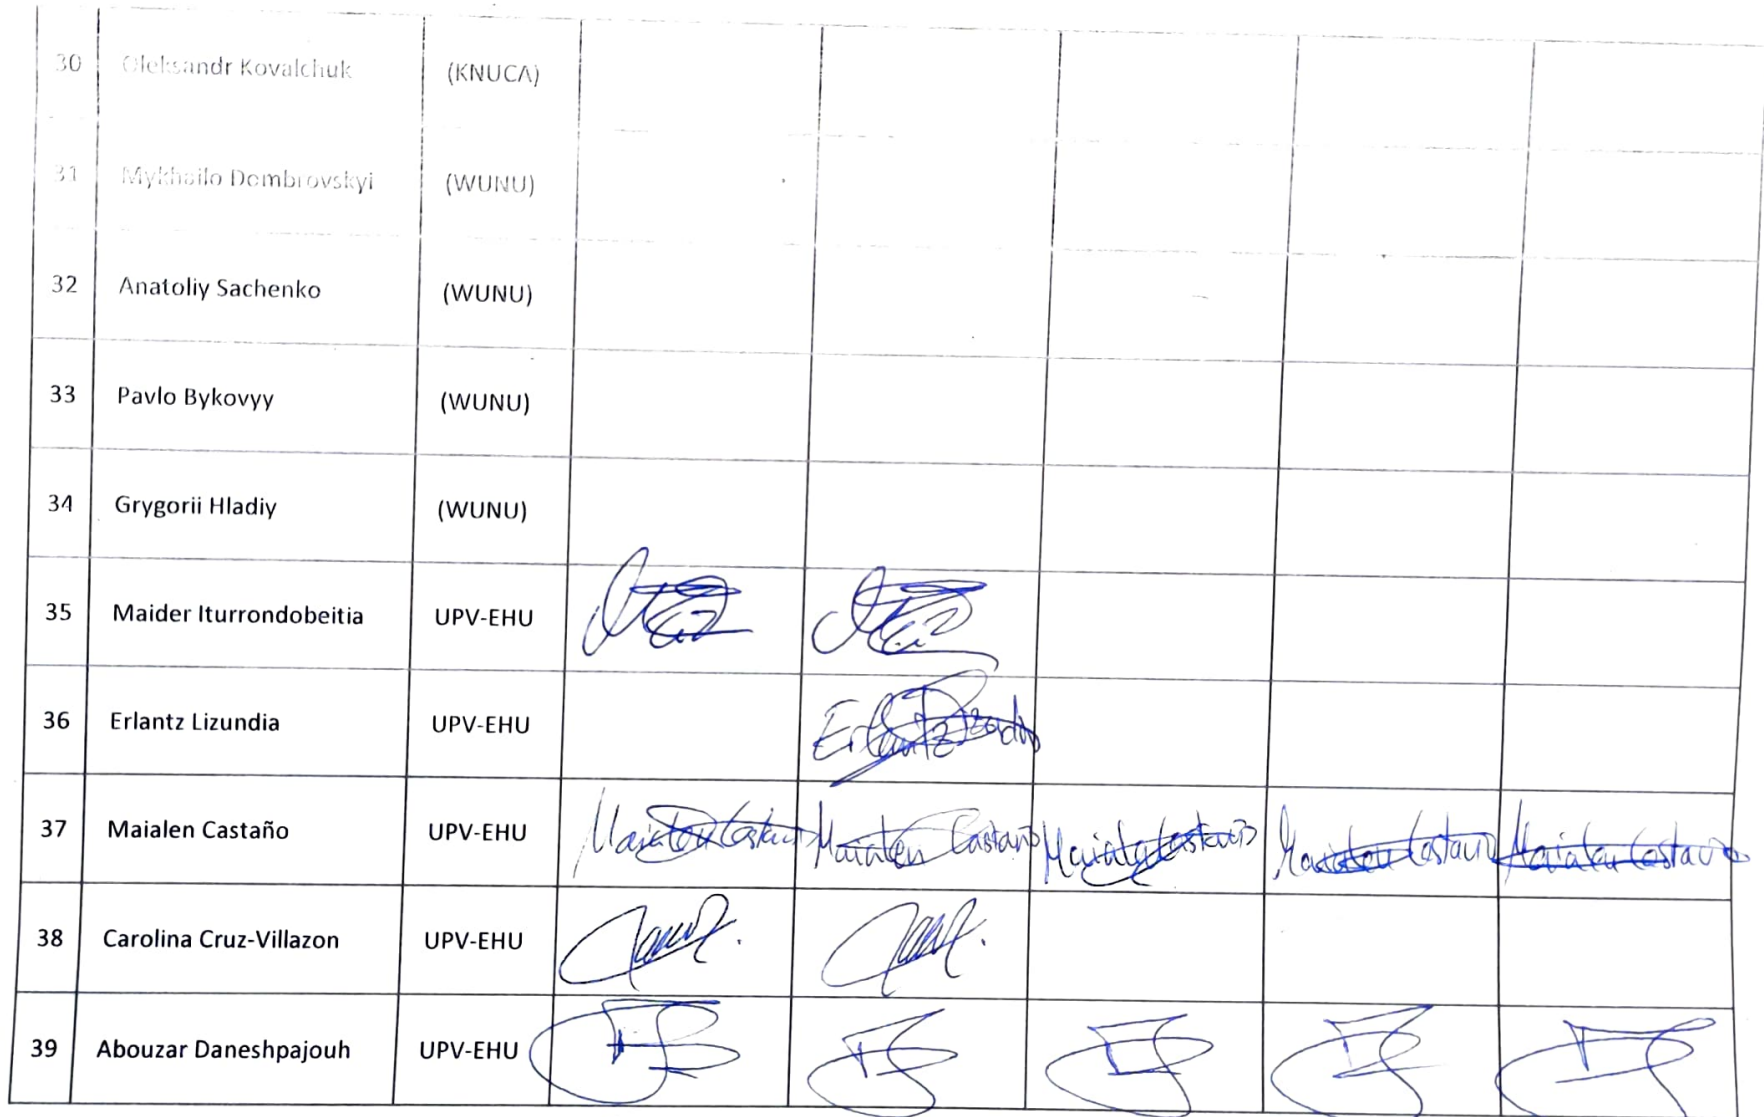 30 Oleksandr Kovalchuk (KNUCA)
31 Mykhailo Dombrovskyi (WUNU)
32 Anatoliy Sachenko (WUNU)
33 Pavlo Bykovyy (WUNU)
34 Grygorii Hladiy (WUNU)
35 Maider Iturrondobeitia UPV-EHU
36 Erlantz Lizundia UPV-EHU Erlantz
37 Maialen Castaño UPV-EHU Maialen Castaño Maialen Castaño Maialen Castaño Maialen Castaño Maialen Castaño
38 Carolina Cruz-Villazon UPV-EHU
39 Abouzar Daneshpajouh UPV-EHU